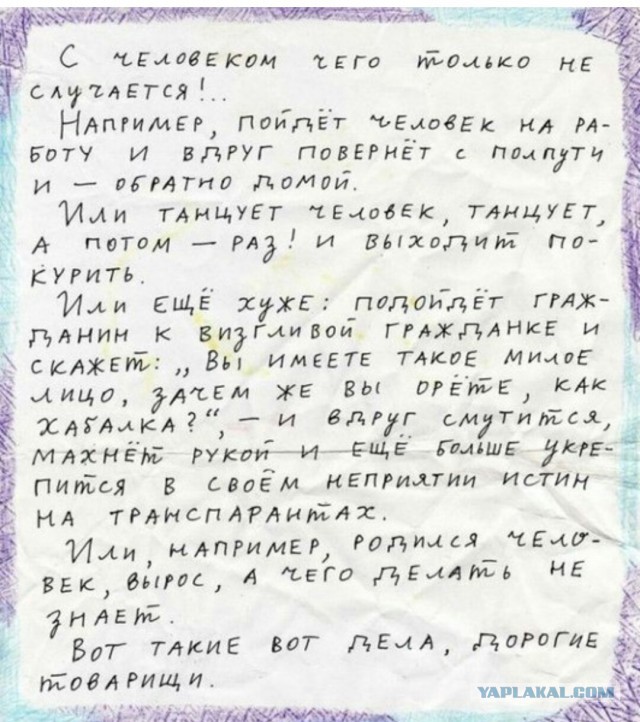 С человеком чего только не
случается!..
Например, пойдёт человек на ра-
боту и вдруг повернёт с полпути
и — обратно домой.
Или танцует человек, танцует,
а потом — раз! и выходит по-
курить.
Или ещё хуже: подойдёт граж-
данин к визгливой гражданке и
скажет: „Вы имеете такое милое
лицо, зачем же вы орёте, как
хабалка?“, — и вдруг смутится,
махнёт рукой и ещё больше укре-
пится в своём неприятии истин
на транспарантах.
Или, например, родился чело-
век, вырос, а чего делать не
знает.
Вот такие вот дела, дорогие
товарищи.
YAPLAKAL.COM